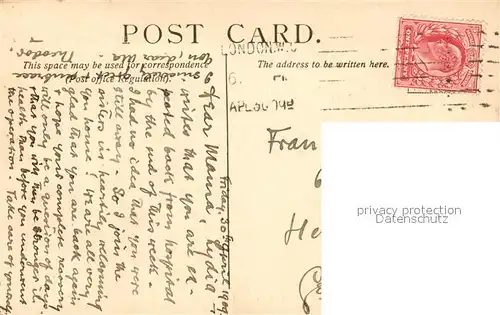 POST CARD.
This space may be used for correspondence
(Post office Regulation).
The address to be written here.
LONDON. W.
AP 30 09
Fran
He
Friday, 30 April 1909.
Dear Mama, Lydia
writes that you are ex-
pected back from hospital
by the end of this week.
I had no idea that you were
still away. So I join the
sisters in heartily welcoming
you home! We are all very
glad that you are back again
& hope your complete recovery
will only be a question of days
& that you will then be stronger in
health than before you underwent
the operation. Take care of yourself
you, dear Ma.
Theodor.
privacy protection
Datenschutz